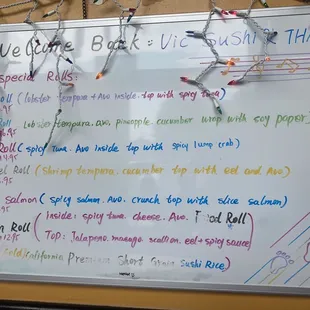 Welcome Back = Vic Sushi & THA
Special Rolls:
Roll (lobster tempura + Avo inside. top with spicy tuna)
Roll Lobster tempura. avo, pineapple. cucumber wrap with soy paper)
Roll (spicy tuna. Avo inside top with spicy lump crab)
Roll (shrimp tempura. cucumber top with eel and Avo)
Salmon (spicy salmon. Avo. crunch top with slice salmon)
Inside: spicy tuna. cheese. Avo. Roll
Top: Jalapeno. mango. scallion. eel + spicy sauce)
California Premium Short Grain Sushi Rice)